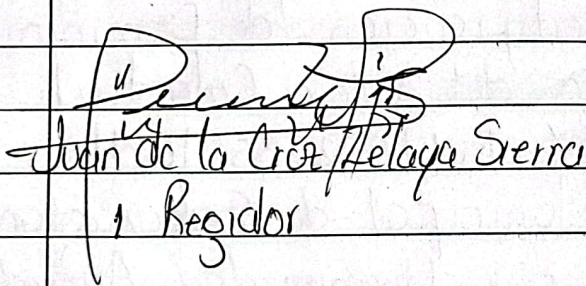 Juan de la Cruz Zelaya Sierra
1 Regidor